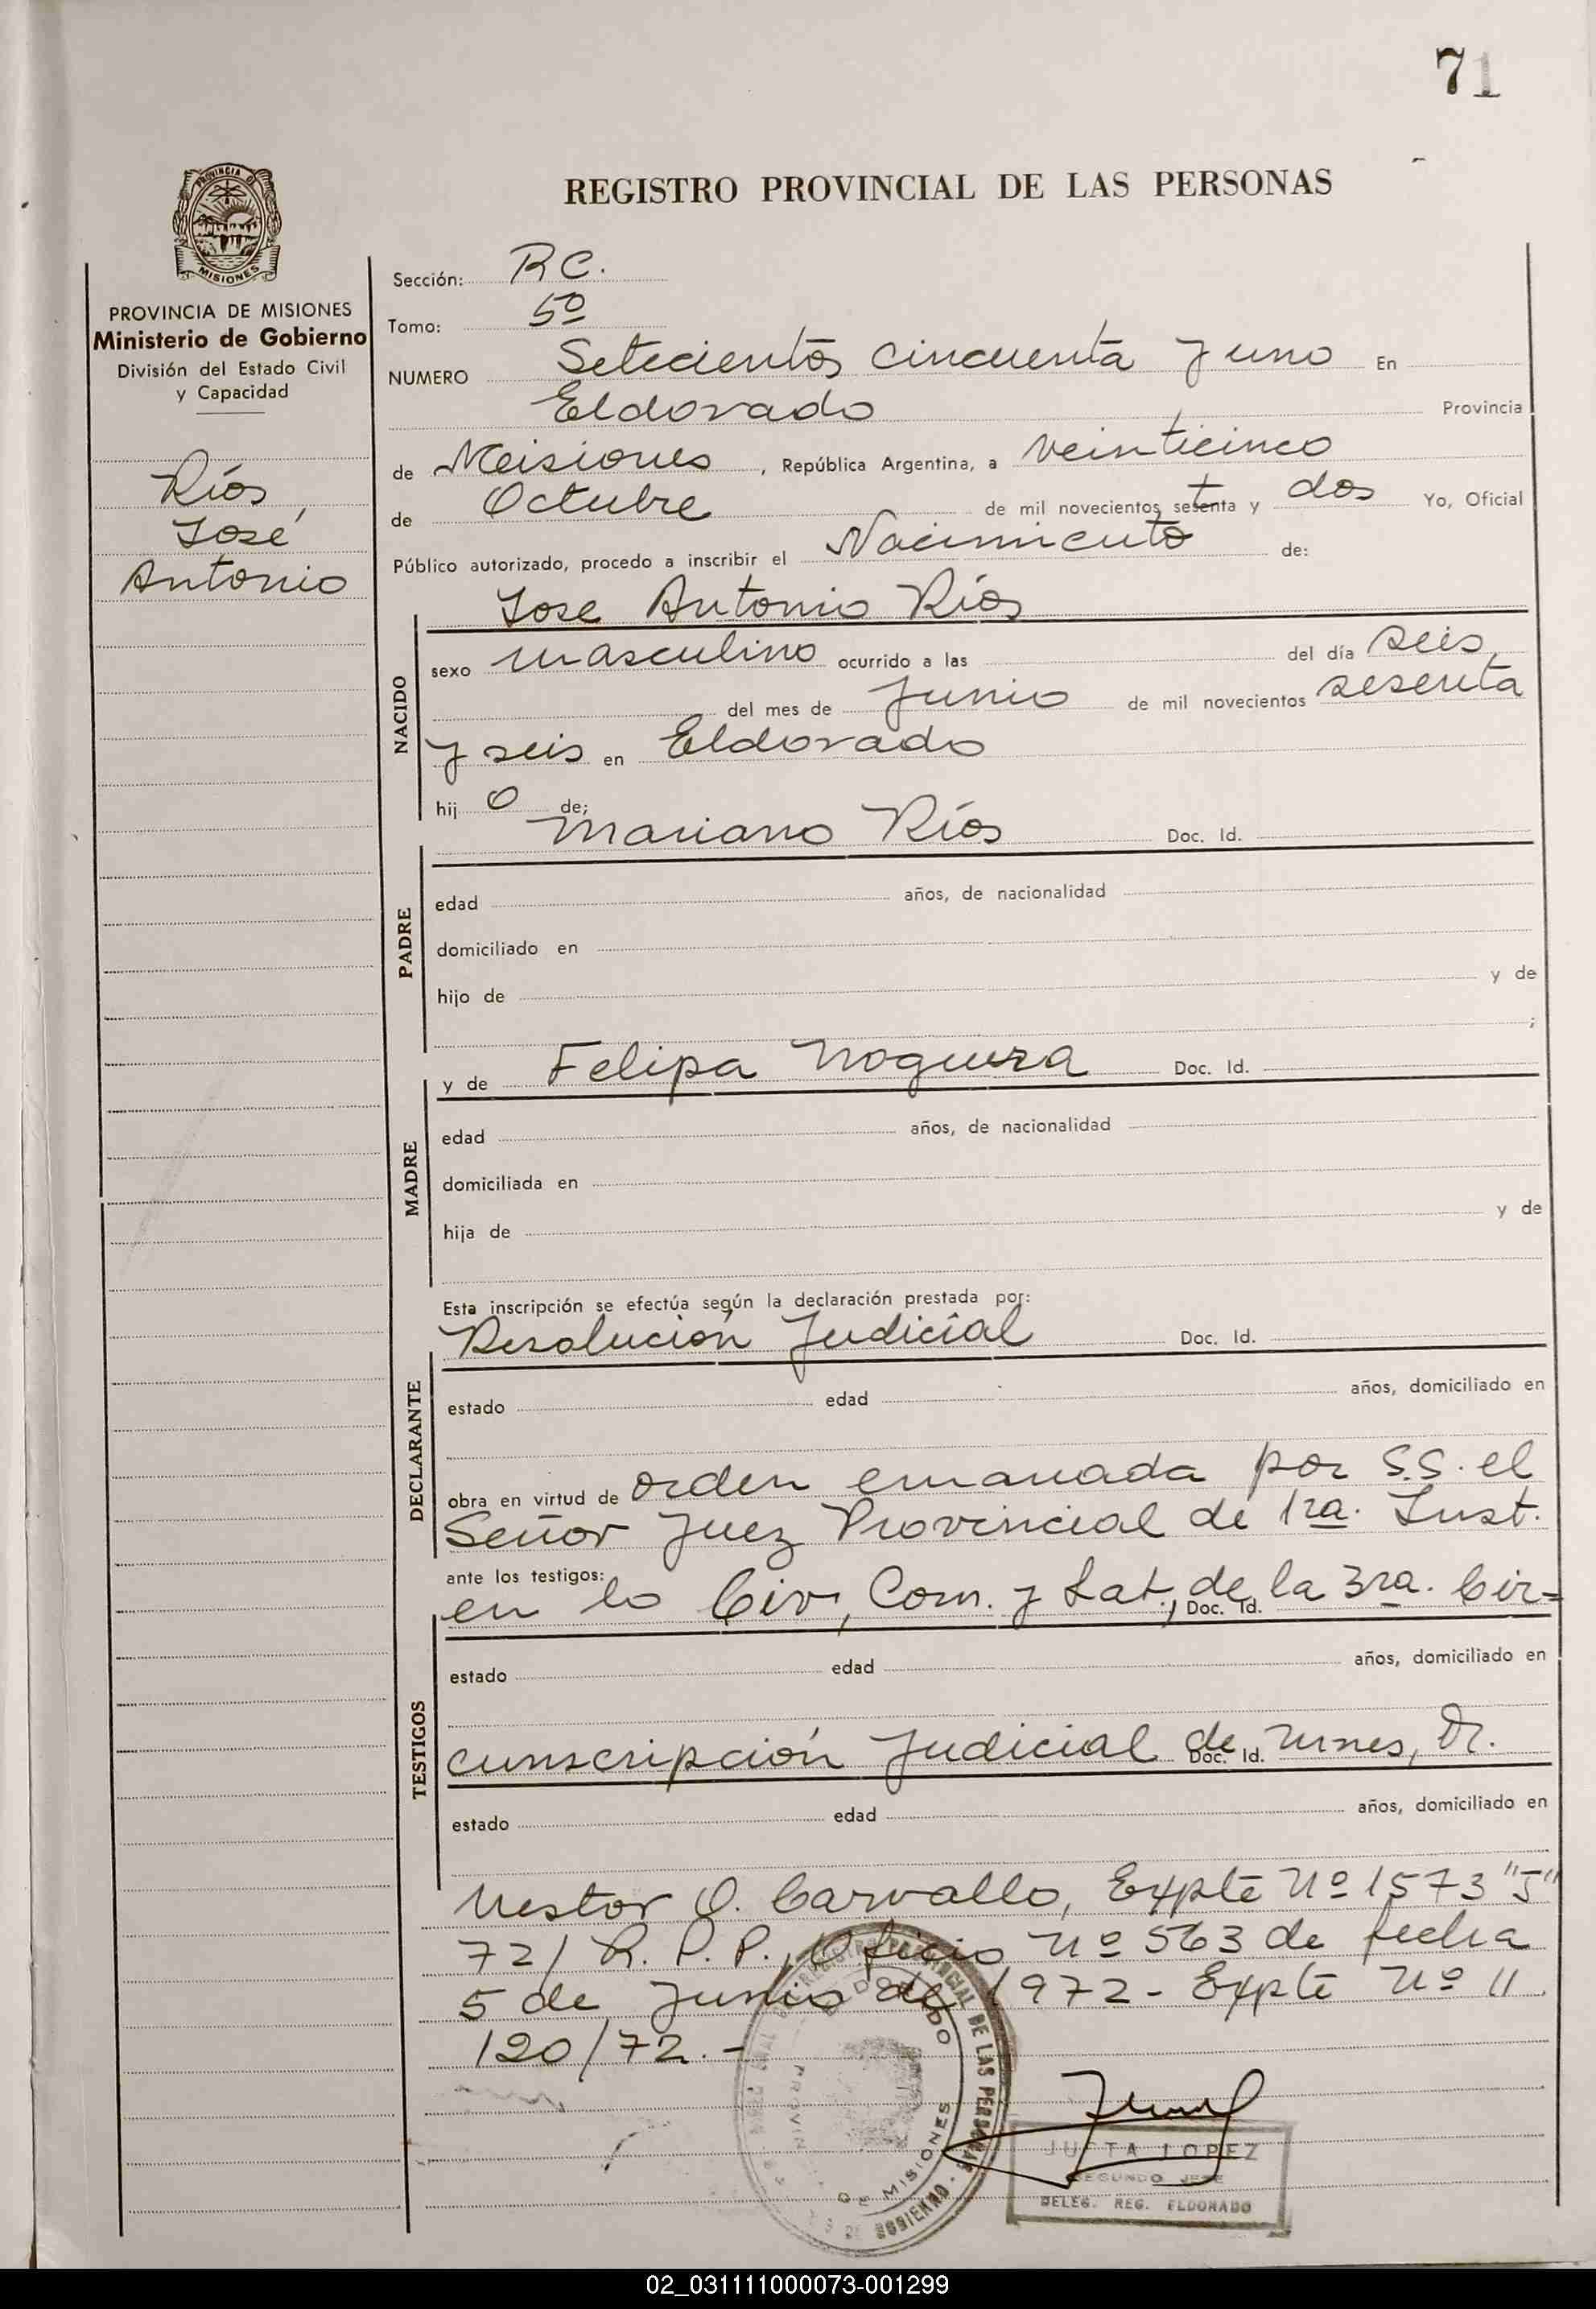 71
REGISTRO PROVINCIAL DE LAS PERSONAS
PROVINCIA DE MISIONES
Ministerio de Gobierno
División del Estado Civil
y Capacidad
Ríos,
José
Antonio
Sección: R C.
Tomo: 5º
NUMERO Setecientos cincuenta y uno En
Eldorado Provincia
de Misiones, República Argentina, a veinticinco
de Octubre de mil novecientos setenta y dos Yo, Oficial
Público autorizado, procedo a inscribir el Nacimiento de:
Jose Antonio Ríos
NACIDO
sexo masculino ocurrido a las del día seis,
del mes de Junio de mil novecientos sesenta
y seis en Eldorado
hij o de;
Mariano Ríos Doc. Id.
PADRE
edad años, de nacionalidad
domiciliado en
hijo de y de
;
y de Felipa Noguera Doc. Id.
MADRE
edad años, de nacionalidad
domiciliada en
hija de y de
Esta inscripción se efectúa según la declaración prestada por:
Resolución Judicial Doc. Id.
DECLARANTE
estado edad años, domiciliado en
obra en virtud de orden emanada por S.S. el
Señor Juez Provincial de 1ra. Inst.
ante los testigos:
en lo Civ, Com. y Lab., de la 3ra. Cir=
Doc. Id.
TESTIGOS
estado edad años, domiciliado en
cunscripción Judicial de Mnes, Dr.
Doc. Id.
estado edad años, domiciliado en
Nestor O. Carvallo, Expte Nº 1573 "J"
72/ R. P. P., Oficio Nº 563 de fecha
5 de Junio de 1972 - Expte Nº 11
120/72.-
REGISTRO PROVINCIAL DE LAS PERSONAS
ELDORADO
DE MISIONES
JUSTA LOPEZ
SEGUNDO JEFE
DELEG. REG. ELDORADO
02_031111000073-001299